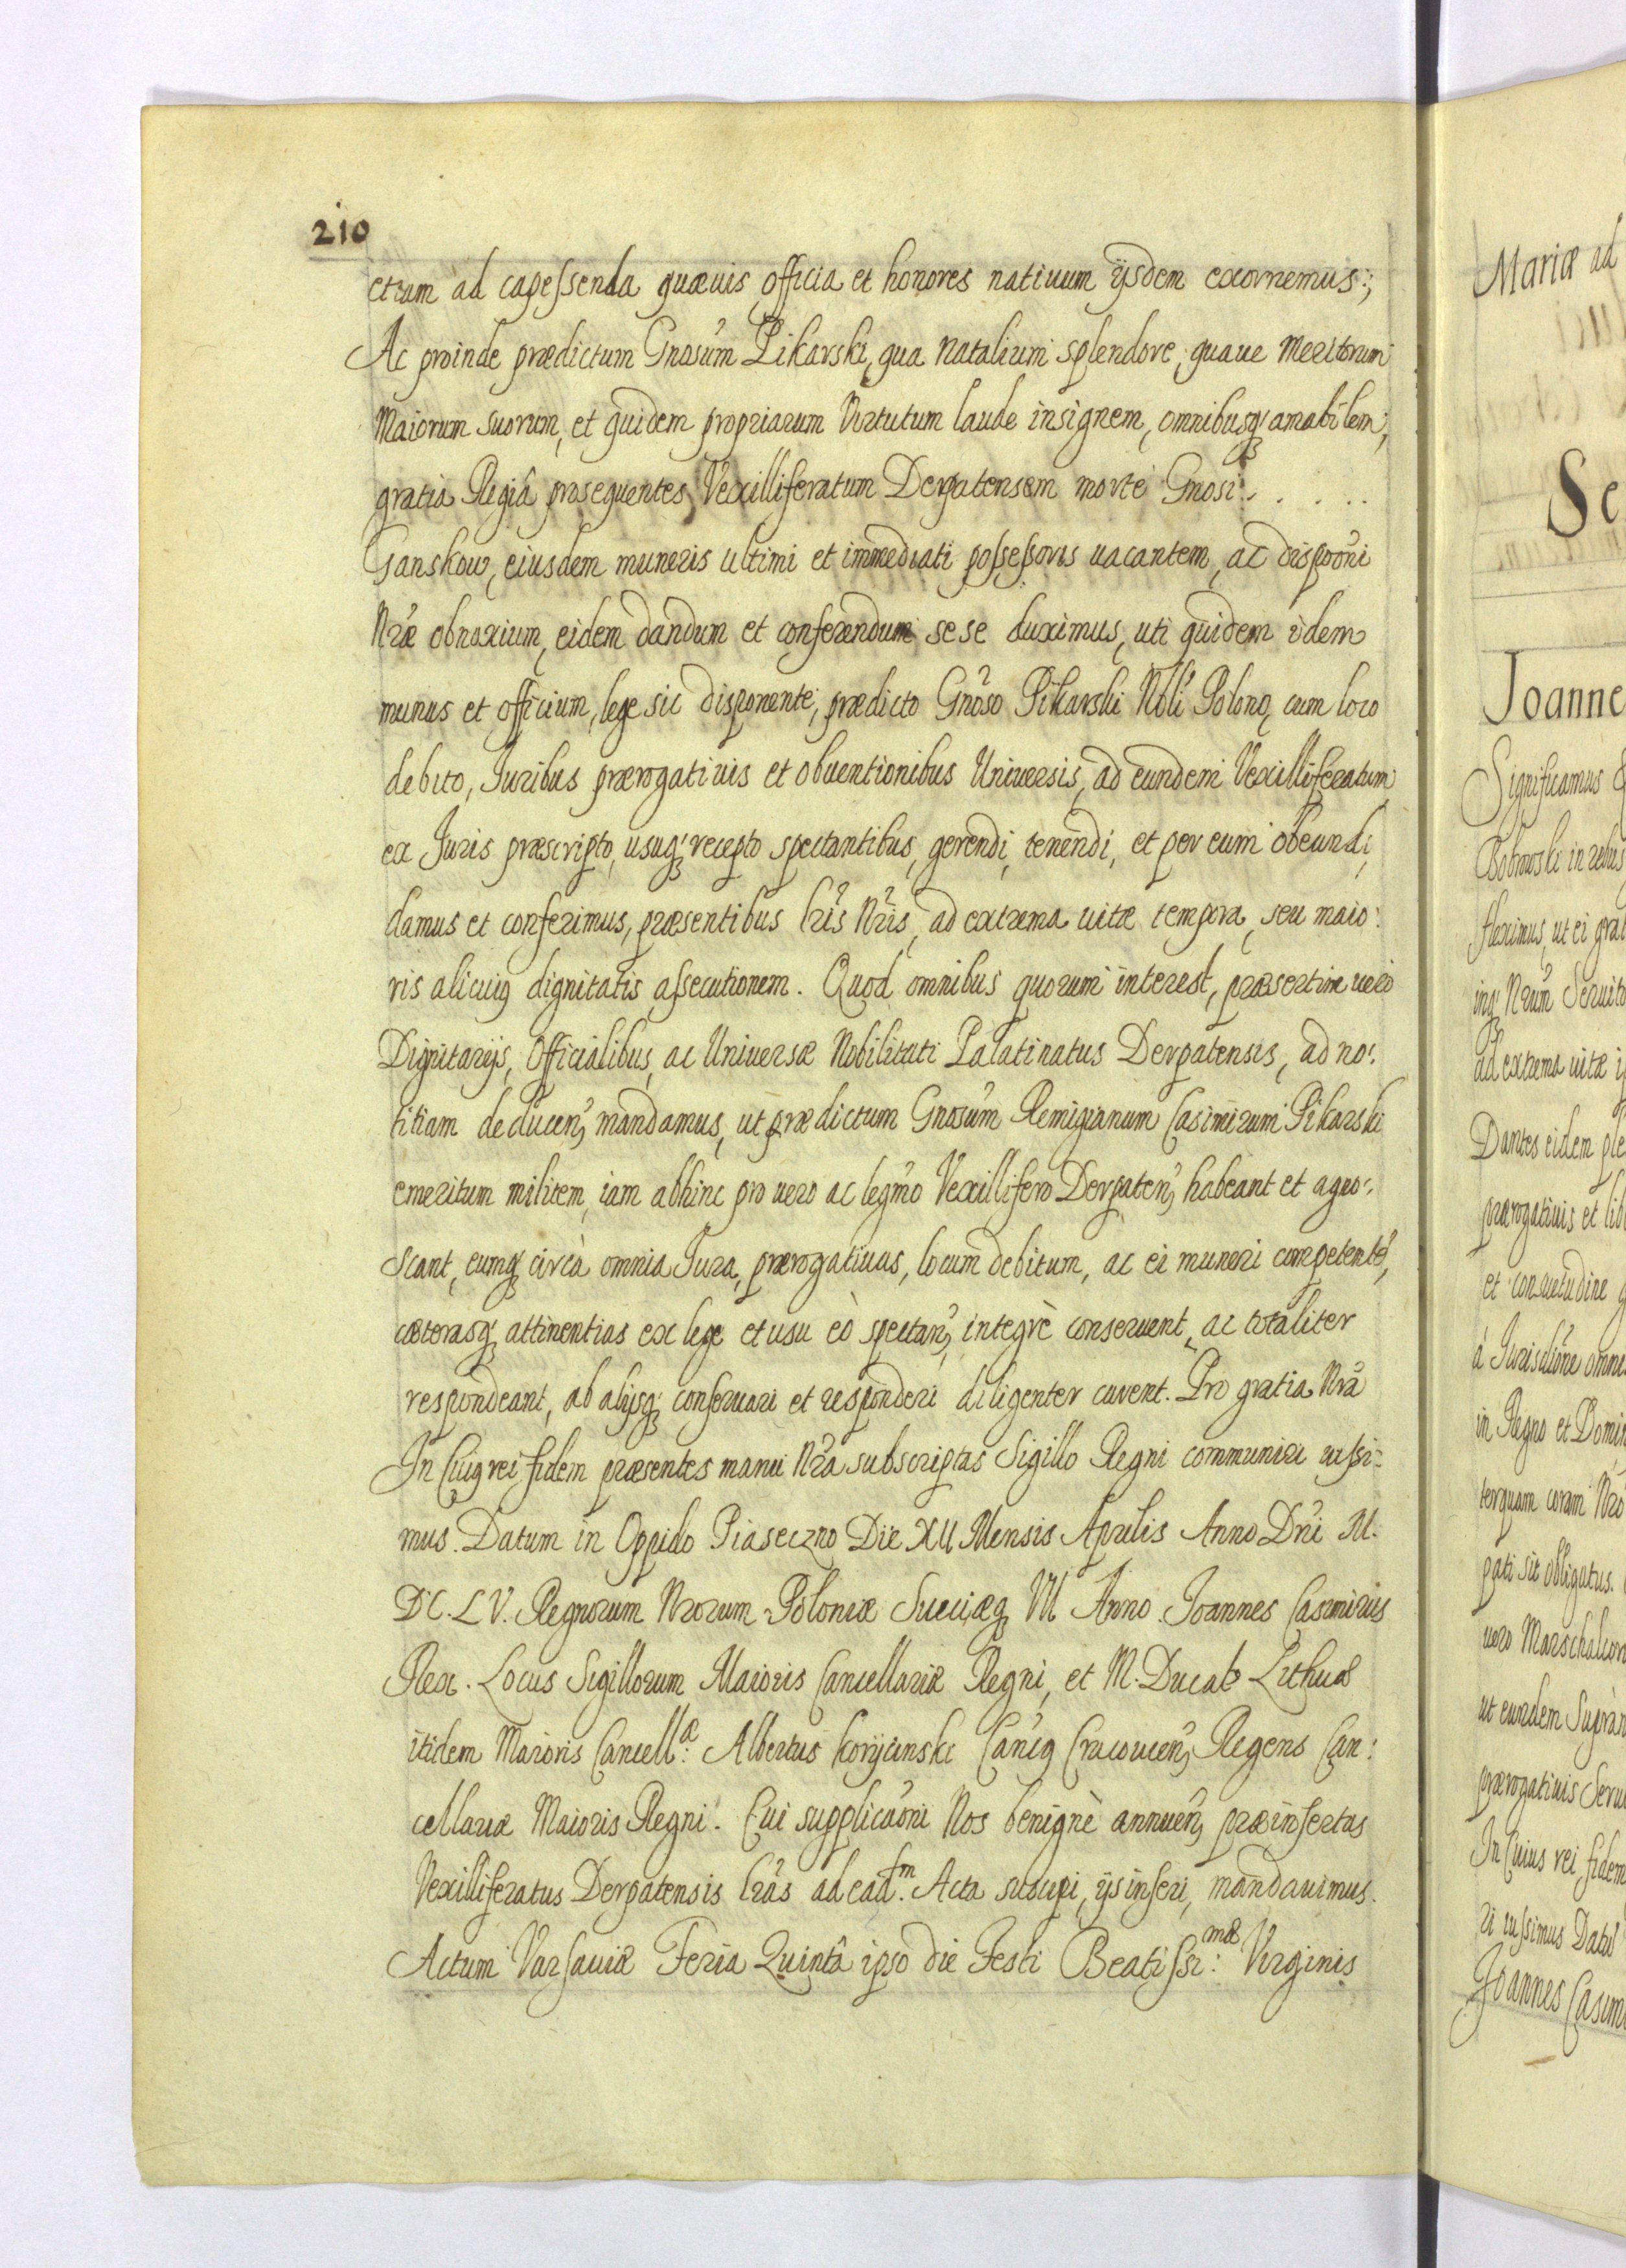 210
etiam ad capessenda quæuis Officia et honores natiuum ijsdem exornemus;
Ac proinde prædictum Gnosum Pikarski, qua Natalium splendore, quaue Meritorum
Maiorum suorum, et quidem propriarum Virtutum laude insignem, omnibusq amabilem,
gratia Regiâ prosequentes, Vexilliferatum Derpatensem morte Gnosi . . . . .
Ganskow, eiusdem muneris ultimi et immediati possessoris uacantem, ac dispoōni
Nræ obnoxium, eidem dandum et conferendum sese duximus, uti quidem idem
munus et officium, lege sic disponente, prædicto Gnoso Pikarski Nobli Polono, cum loco
debito, Juribus prærogatiuis et obuentionibus Uniuersis, ad eundem Vexilliferatum
ex Juris præscripto, usuq recepto spectantibus, gerendi, tenendi, et per eum obeundi,
damus et conferimus, præsentibus lris Nris, ad extrema uitæ tempora, seu maio:
ris alicuiq dignitatis assecutionem. Quod omnibus quorum interest, præsertim uero
Dignitarijs, Officialibus, ac Uniuersæ Nobilitati Palatinatus Derpatensis, ad no:
titiam deducen, mandamus, ut prædictum Gnosum Remigianum Casimirum Pikarski
emeritum militem, iam abhinc pro uero ac legmo Vexillifero Derpaten, habeant et agno:
scant, eumq circà omnia Jura, prærogatiuas, locum debitum, ac ei muneri competente,
cæterasq attinentias ex lege et usu eò spectan, integrè conseruent, ac totaliter
respondeant, ab alijsq conseruari et responderi diligenter curent. Pro gratia Nra
In Cuiq rei fidem præsentes manu Nra subscriptas Sigillo Regni communiri iussi:
mus. Datum in Oppido Piaseczno Die XII Mensis Aprilis Anno Dni M.
DC. LV. Regnorum Nrorum Poloniæ Sueciæq VII Anno. Joannes Casimirus
Rex. Locus Sigillorum Maioris Cancellariæ Regni, et M. Ducat Lithuæ
itidem Maioris Cancell:æ Albertus Koryciński Canciq Cracouien, Regens Can:
cellariæ Maioris Regni. Cui supplicaōni Nos benignè annuen, præinsertas
Vexilliferatus Derpatensis lras ad ead:m Acta suscipi, ijs inseri, mandauimus.
Actum Varsauiæ Feria Quintâ ipso die Festi Beatissi:mæ Virginis
Mariæ ad
Se
Joanne
Significamus
Bobrowski in rebus
fleximus, ut ei grat
inq Nrum Seruito
ad extrema uitæ
Dantes eidem ple
prærogatiuis et lib
et consuetudine
à Jurisdictione omni
in Regno et Domin
terquam coram Nro
gati sit obligatus.
uero Marschalcor
ut eundem Supran
prærogatiuis Serui
In Cuius rei fidem
ri iussimus Datu
Joannes Casimi